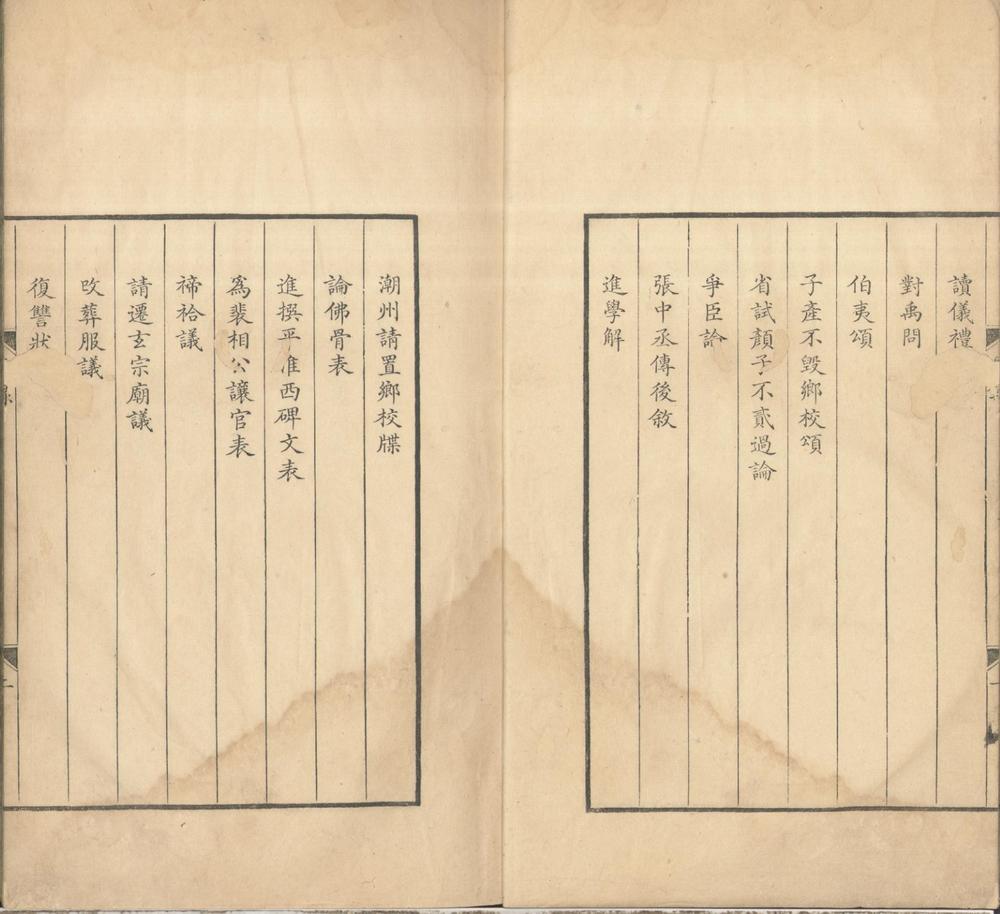 讀儀禮
對禹問
伯夷頌
子產不毀鄉校頌
省試顏子不貳過論
爭臣論
張中丞傳後敘
進學解
潮州請置鄉校牒
論佛骨表
進撰平淮西碑文表
為裴相公讓官表
禘祫議
請遷玄宗廟議
改葬服議
復讐狀